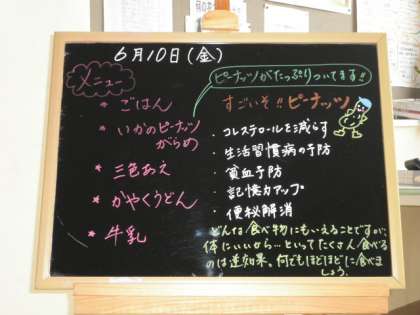 6月10日(金)
メニュー
ピーナッツがたっぷりついてます!!
* ごはん
* いかのピーナッツ
がらめ
* 三色あえ
* かやくうどん
* 牛乳
すごいぞ!!ピーナッツ
・コレステロールを減らす
・生活習慣病の予防
・貧血予防
・記憶力アップ
・便秘解消
どんな食べ物にもいえることですが、
体にいいから…といってたくさん食べる
のは逆効果。何でもほどほどに食べま
しょう。